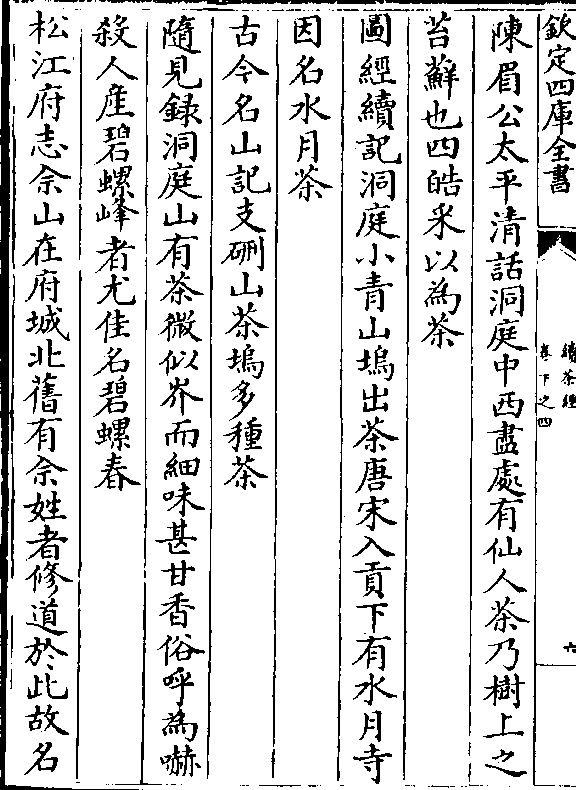 欽定四庫全書
續茶經
卷下之四
六
陳眉公太平清話洞庭中西盡處有仙人茶乃樹上之
苔蘚也四皓采以為茶
圖經續記洞庭小青山塢出茶唐宋入貢下有水月寺
因名水月茶
古今名山記支硎山茶塢多種茶
隨見録洞庭山有茶微似岕而細味甚甘香俗呼為嚇
殺人産碧螺峰者尤佳名碧螺春
松江府志佘山在府城北舊有佘姓者修道於此故名